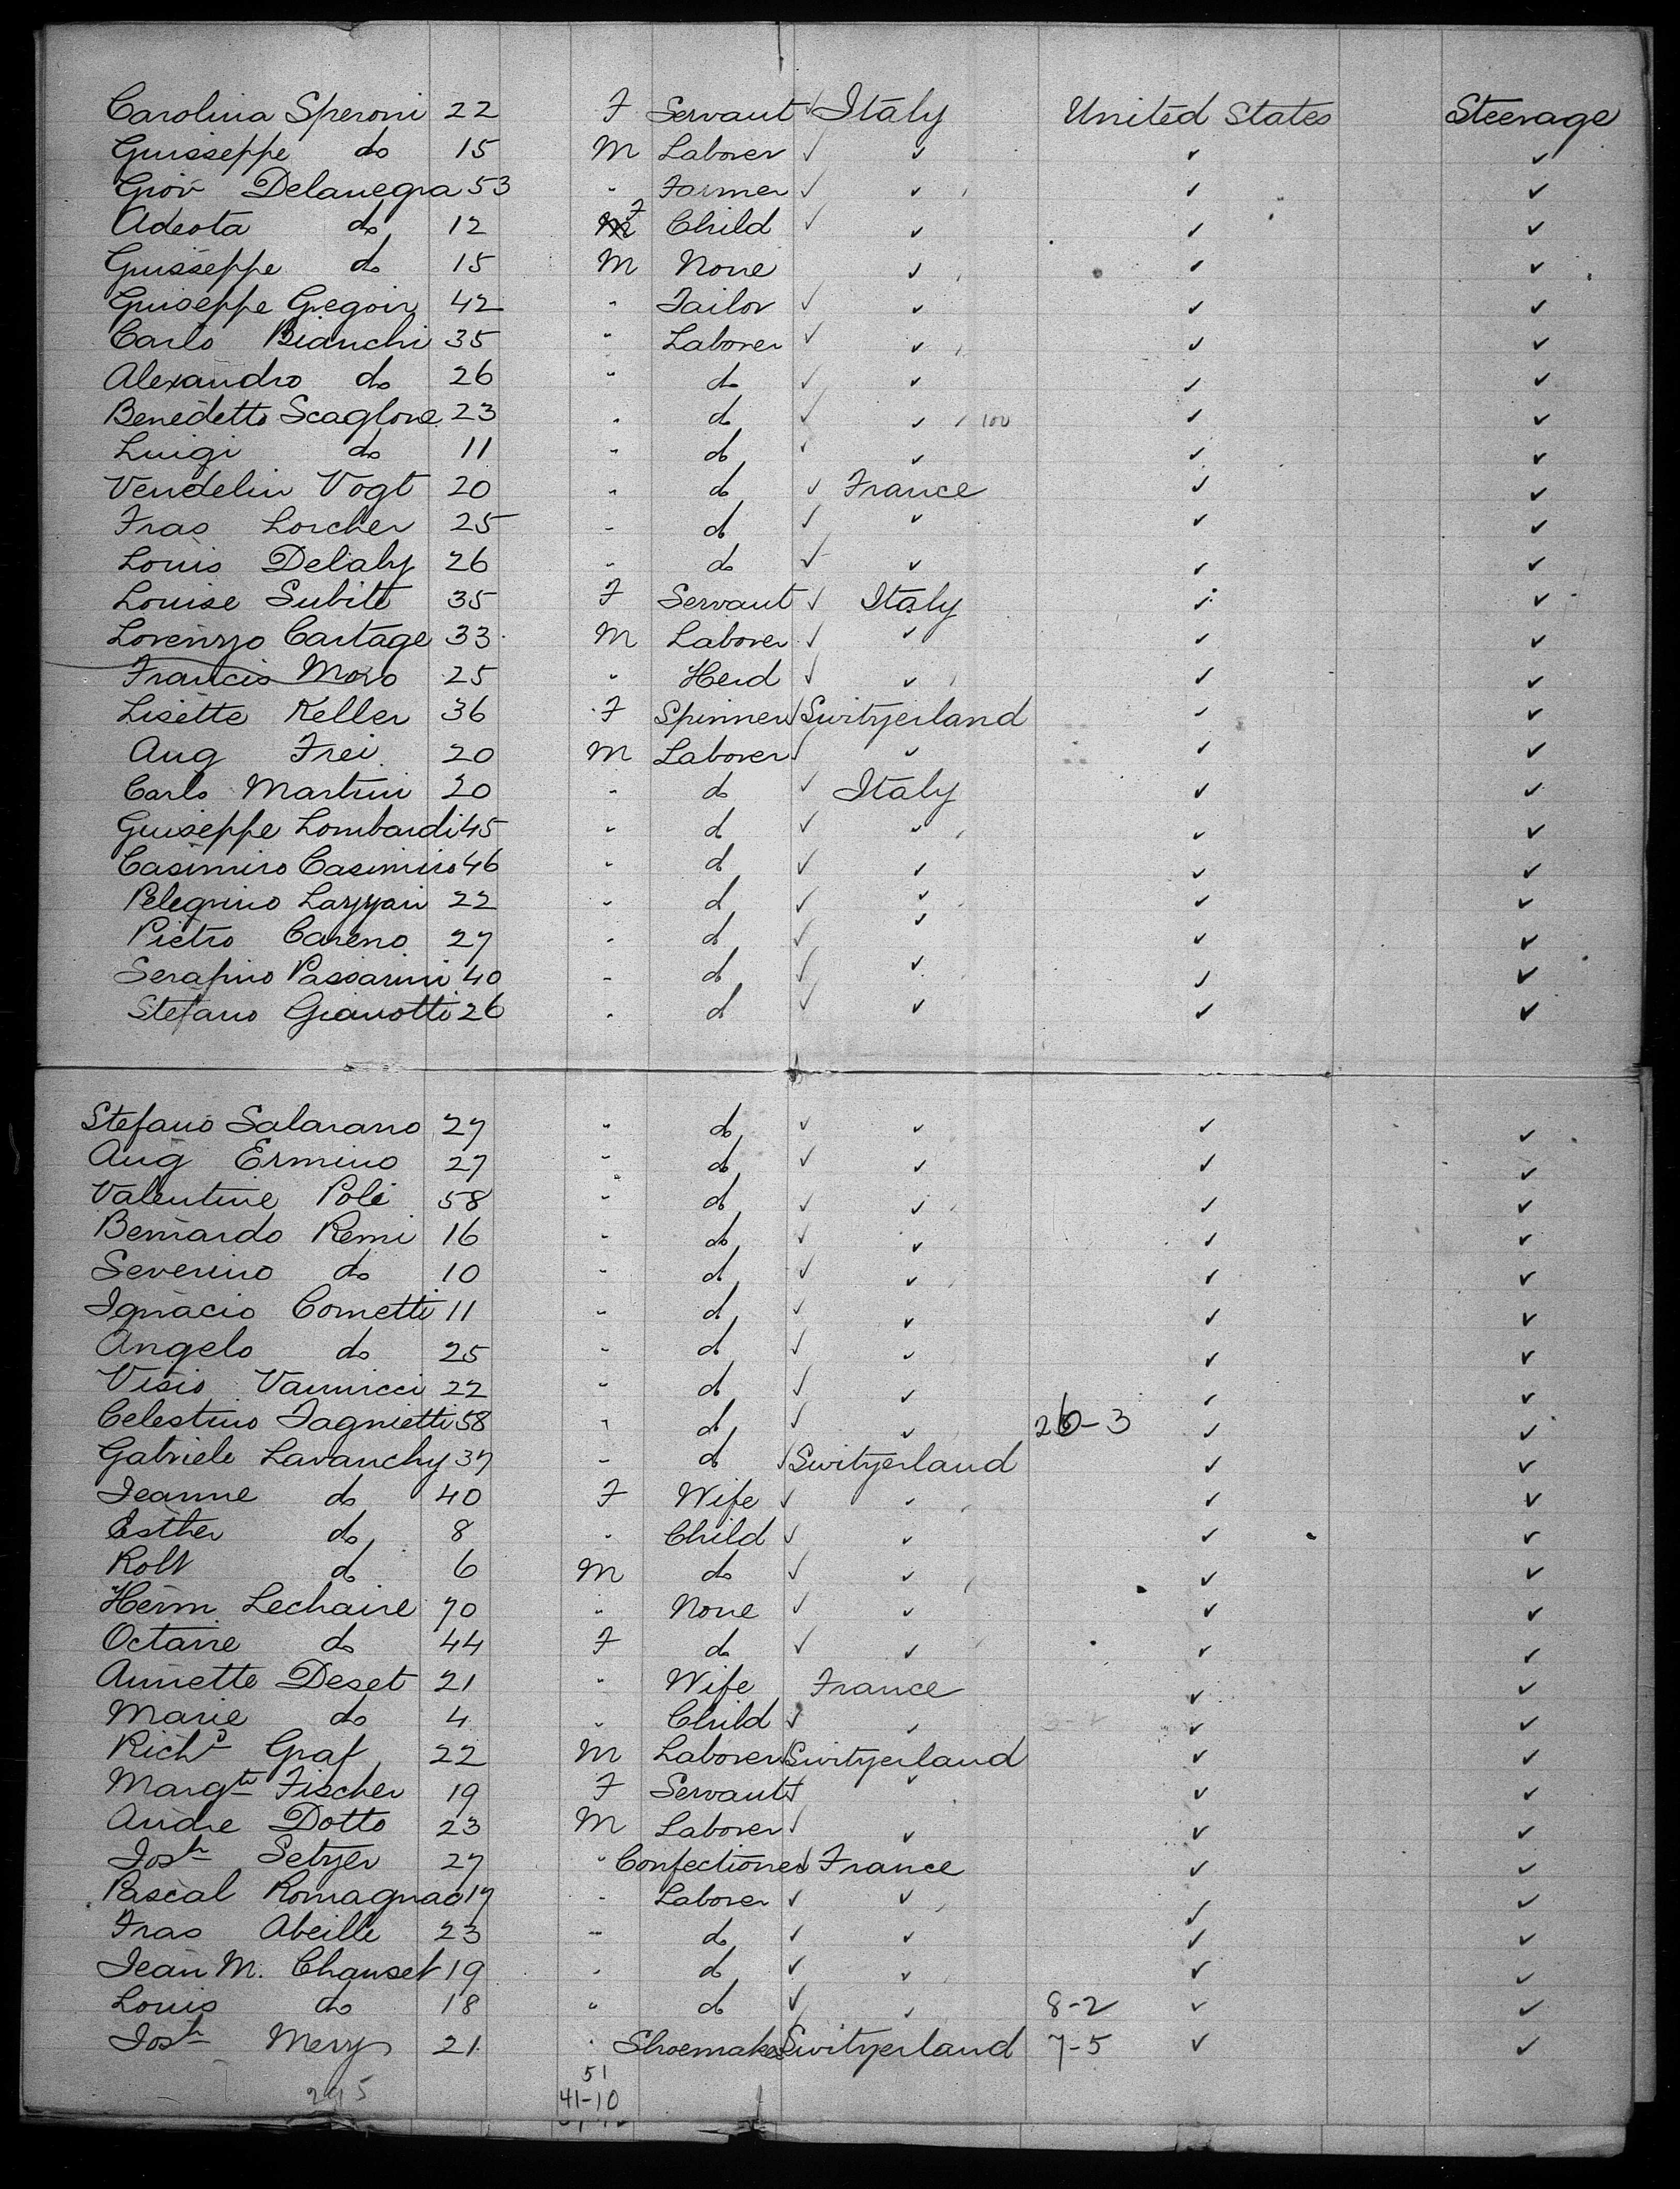 Carolina Speroni 22 F Servant ✓ Italy United States Steerage
Guisseppe do 15 M Laborer ✓ ✓ ✓ ✓
Giov Delanegra 53 " Farmer ✓ ✓ ✓ ✓
Adeota do 12 F Child ✓ ✓ ✓ ✓
Guisseppe do 15 M None ✓ ✓ ✓
Guiseppe Gregoir 42 " Tailor ✓ ✓ ✓ ✓
Carlo Bianchi 35 " Laborer ✓ ✓ ✓ ✓
Alexandro do 26 " do ✓ ✓ ✓ ✓
Benedetto Scaglone 23 " do ✓ ✓ 100 ✓ ✓
Luigi do 11 " do ✓ ✓ ✓ ✓
Vendelin Vogt 20 " do ✓ France ✓ ✓
Fras Lorcher 25 " do ✓ ✓ ✓ ✓
Louis Delaby 26 " do ✓ ✓ ✓ ✓
Louise Subite 35 F Servant ✓ Italy ✓ ✓
Lorenzo Cartage 33 M Laborer ✓ ✓ ✓ ✓
Francis Moro 25 " Herd ✓ ✓ ✓ ✓
Lisette Keller 36 F Spinner ✓ Switzerland ✓ ✓
Aug Frei 20 M Laborer ✓ ✓ ✓ ✓
Carlo Martini 20 " do ✓ Italy ✓ ✓
Guiseppe Lombardi 45 " do ✓ ✓ ✓ ✓
Casimiro Casimiro 46 " do ✓ ✓ ✓ ✓
Pelegrino Lazzari 22 " do ✓ ✓ ✓ ✓
Pietro Careno 27 " do ✓ ✓ ✓ ✓
Serafino Passarini 40 " do ✓ ✓ ✓ ✓
Stefano Gianotti 26 " do ✓ ✓ ✓ ✓
Stefano Salarano 27 " do ✓ ✓ ✓ ✓
Aug Ermino 27 " do ✓ ✓ ✓ ✓
Valentine Poli 58 " do ✓ ✓ ✓ ✓
Bernardo Remi 16 " do ✓ ✓ ✓ ✓
Severino do 10 " do ✓ ✓ ✓ ✓
Ignacio Cometti 11 " do ✓ ✓ ✓ ✓
Angelo do 25 " do ✓ ✓ ✓ ✓
Visio Vannicci 22 " do ✓ ✓ ✓ ✓
Celestino Tagnietti 58 " do ✓ ✓ 26-3 ✓ ✓
Gabriele Lavanchy 37 " do ✓ Switzerland ✓ ✓
Jeanne do 40 F Wife ✓ ✓ ✓ ✓
Esther do 8 " Child ✓ ✓ ✓ ✓
Robt do 6 M do ✓ ✓ ✓ ✓
Herm Lechaire 70 " None ✓ ✓ ✓ ✓
Octavie do 44 F do ✓ ✓ ✓ ✓
Annette Deset 21 " Wife France ✓ ✓
Marie do 4 " Child ✓ ✓ ✓ ✓
Richd Graf 22 M Laborer ✓ Switzerland ✓ ✓
Margte Fischer 19 F Servant ✓ ✓ ✓ ✓
Andre Dotto 23 M Laborer ✓ ✓ ✓ ✓
Josh Setzer 27 " Confectioner ✓ France ✓ ✓
Pascal Romagnac 17 " Laborer ✓ ✓ ✓ ✓
Fras Abeille 23 " do ✓ ✓ ✓ ✓
Jean M. Chauset 19 " do ✓ ✓ ✓ ✓
Louis do 18 " do ✓ ✓ 8-2 ✓ ✓
Josh Mery 21 " Shoemaker Switzerland 7-5 ✓ ✓
51
41-10